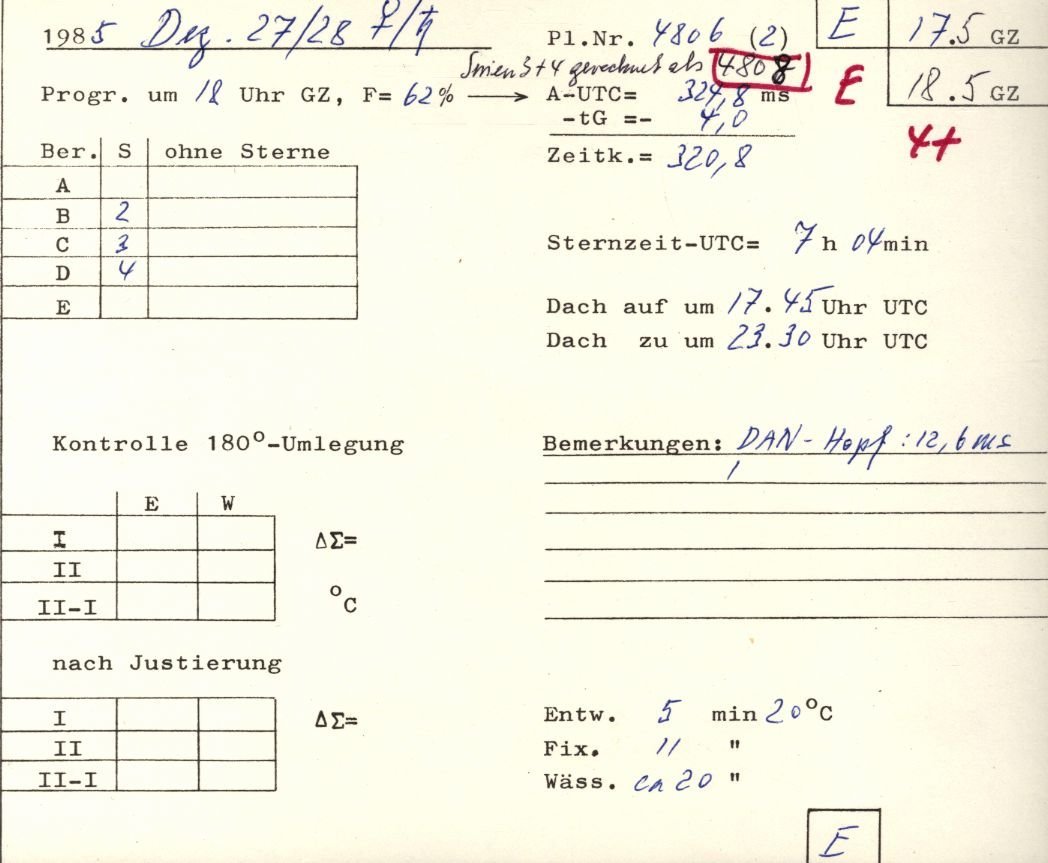 1985 Dez. 27/28 ♀/♄
Pl.Nr. 4806 (2)
E 17.5 GZ
Serien 3+4 gerechnet als 4808
Progr. um 18 Uhr GZ, F= 62% ⟶ A-UTC= 324,8 ms
E 18.5 GZ
-tG =- 4,0
4+
Zeitk.= 320,8
Ber. S ohne Sterne
A
B 2
C 3
D 4
E
Sternzeit-UTC= 7 h 04 min
Dach auf um 17.45 Uhr UTC
Dach zu um 23.30 Uhr UTC
Kontrolle 180°-Umlegung
Bemerkungen: DAN-Hopf: 12,6 ms
E W
I ΔΣ=
II
II-I °C
nach Justierung
I ΔΣ=
II
II-I
Entw. 5 min 20°C
Fix. 11 "
Wäss. ca 20 "
E